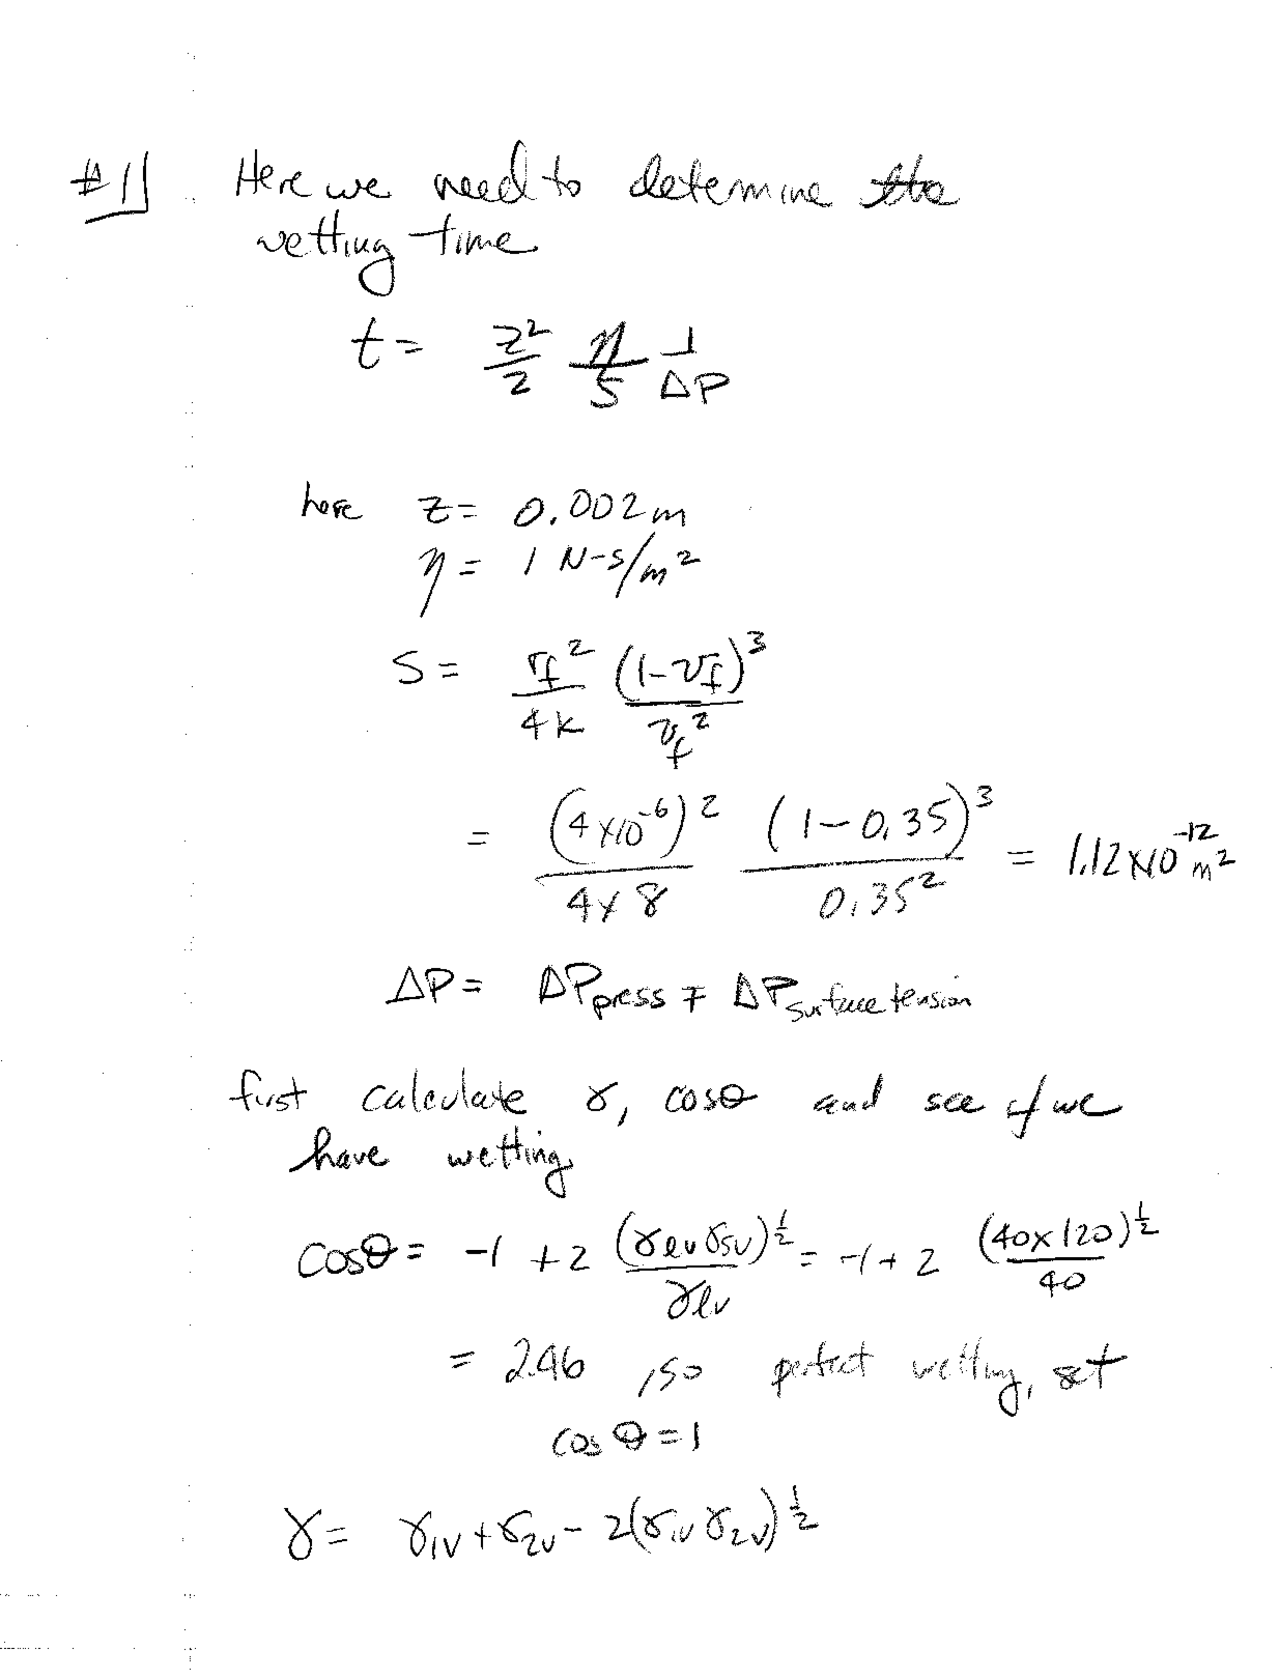 #1 Here we need to determine the
wetting time
t = z²/2 η/S 1/ΔP
here z = 0.002 m
η = 1 N-s/m²
S = r_f²/4k (1-v_f)³/v_f²
= (4x10⁻⁶)²/4x8 (1-0.35)³/0.35² = 1.12x10⁻¹² m²
ΔP = ΔP_press ∓ ΔP_surface tension
first calculate γ, cosθ and see if we
have wetting
cosθ = -1 + 2 (γ_lv γ_sv)^½/γ_lv = -1 + 2 (40x120)^½/40
= 2.46, so perfect wetting, set
cos θ = 1
γ = γ_1v + γ_2v - 2(γ_1v γ_2v)^½